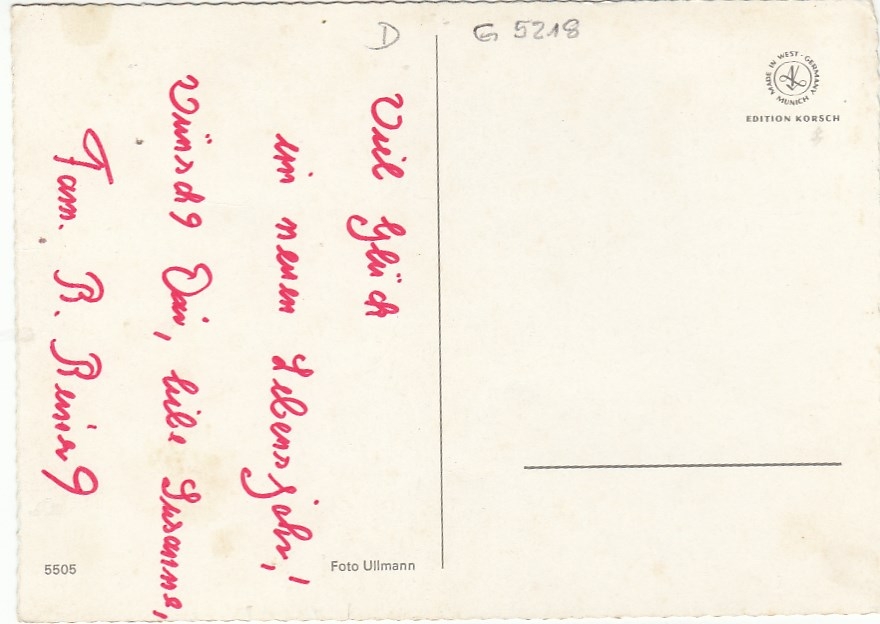 D
G 5218
MADE IN WEST-GERMANY
MUNICH
EDITION KORSCH
Viel Glück
im neuen Lebensjahr,!
Wünscht Dir, liebe Susanne,
Fam. R. Reinert
5505
Foto Ullmann